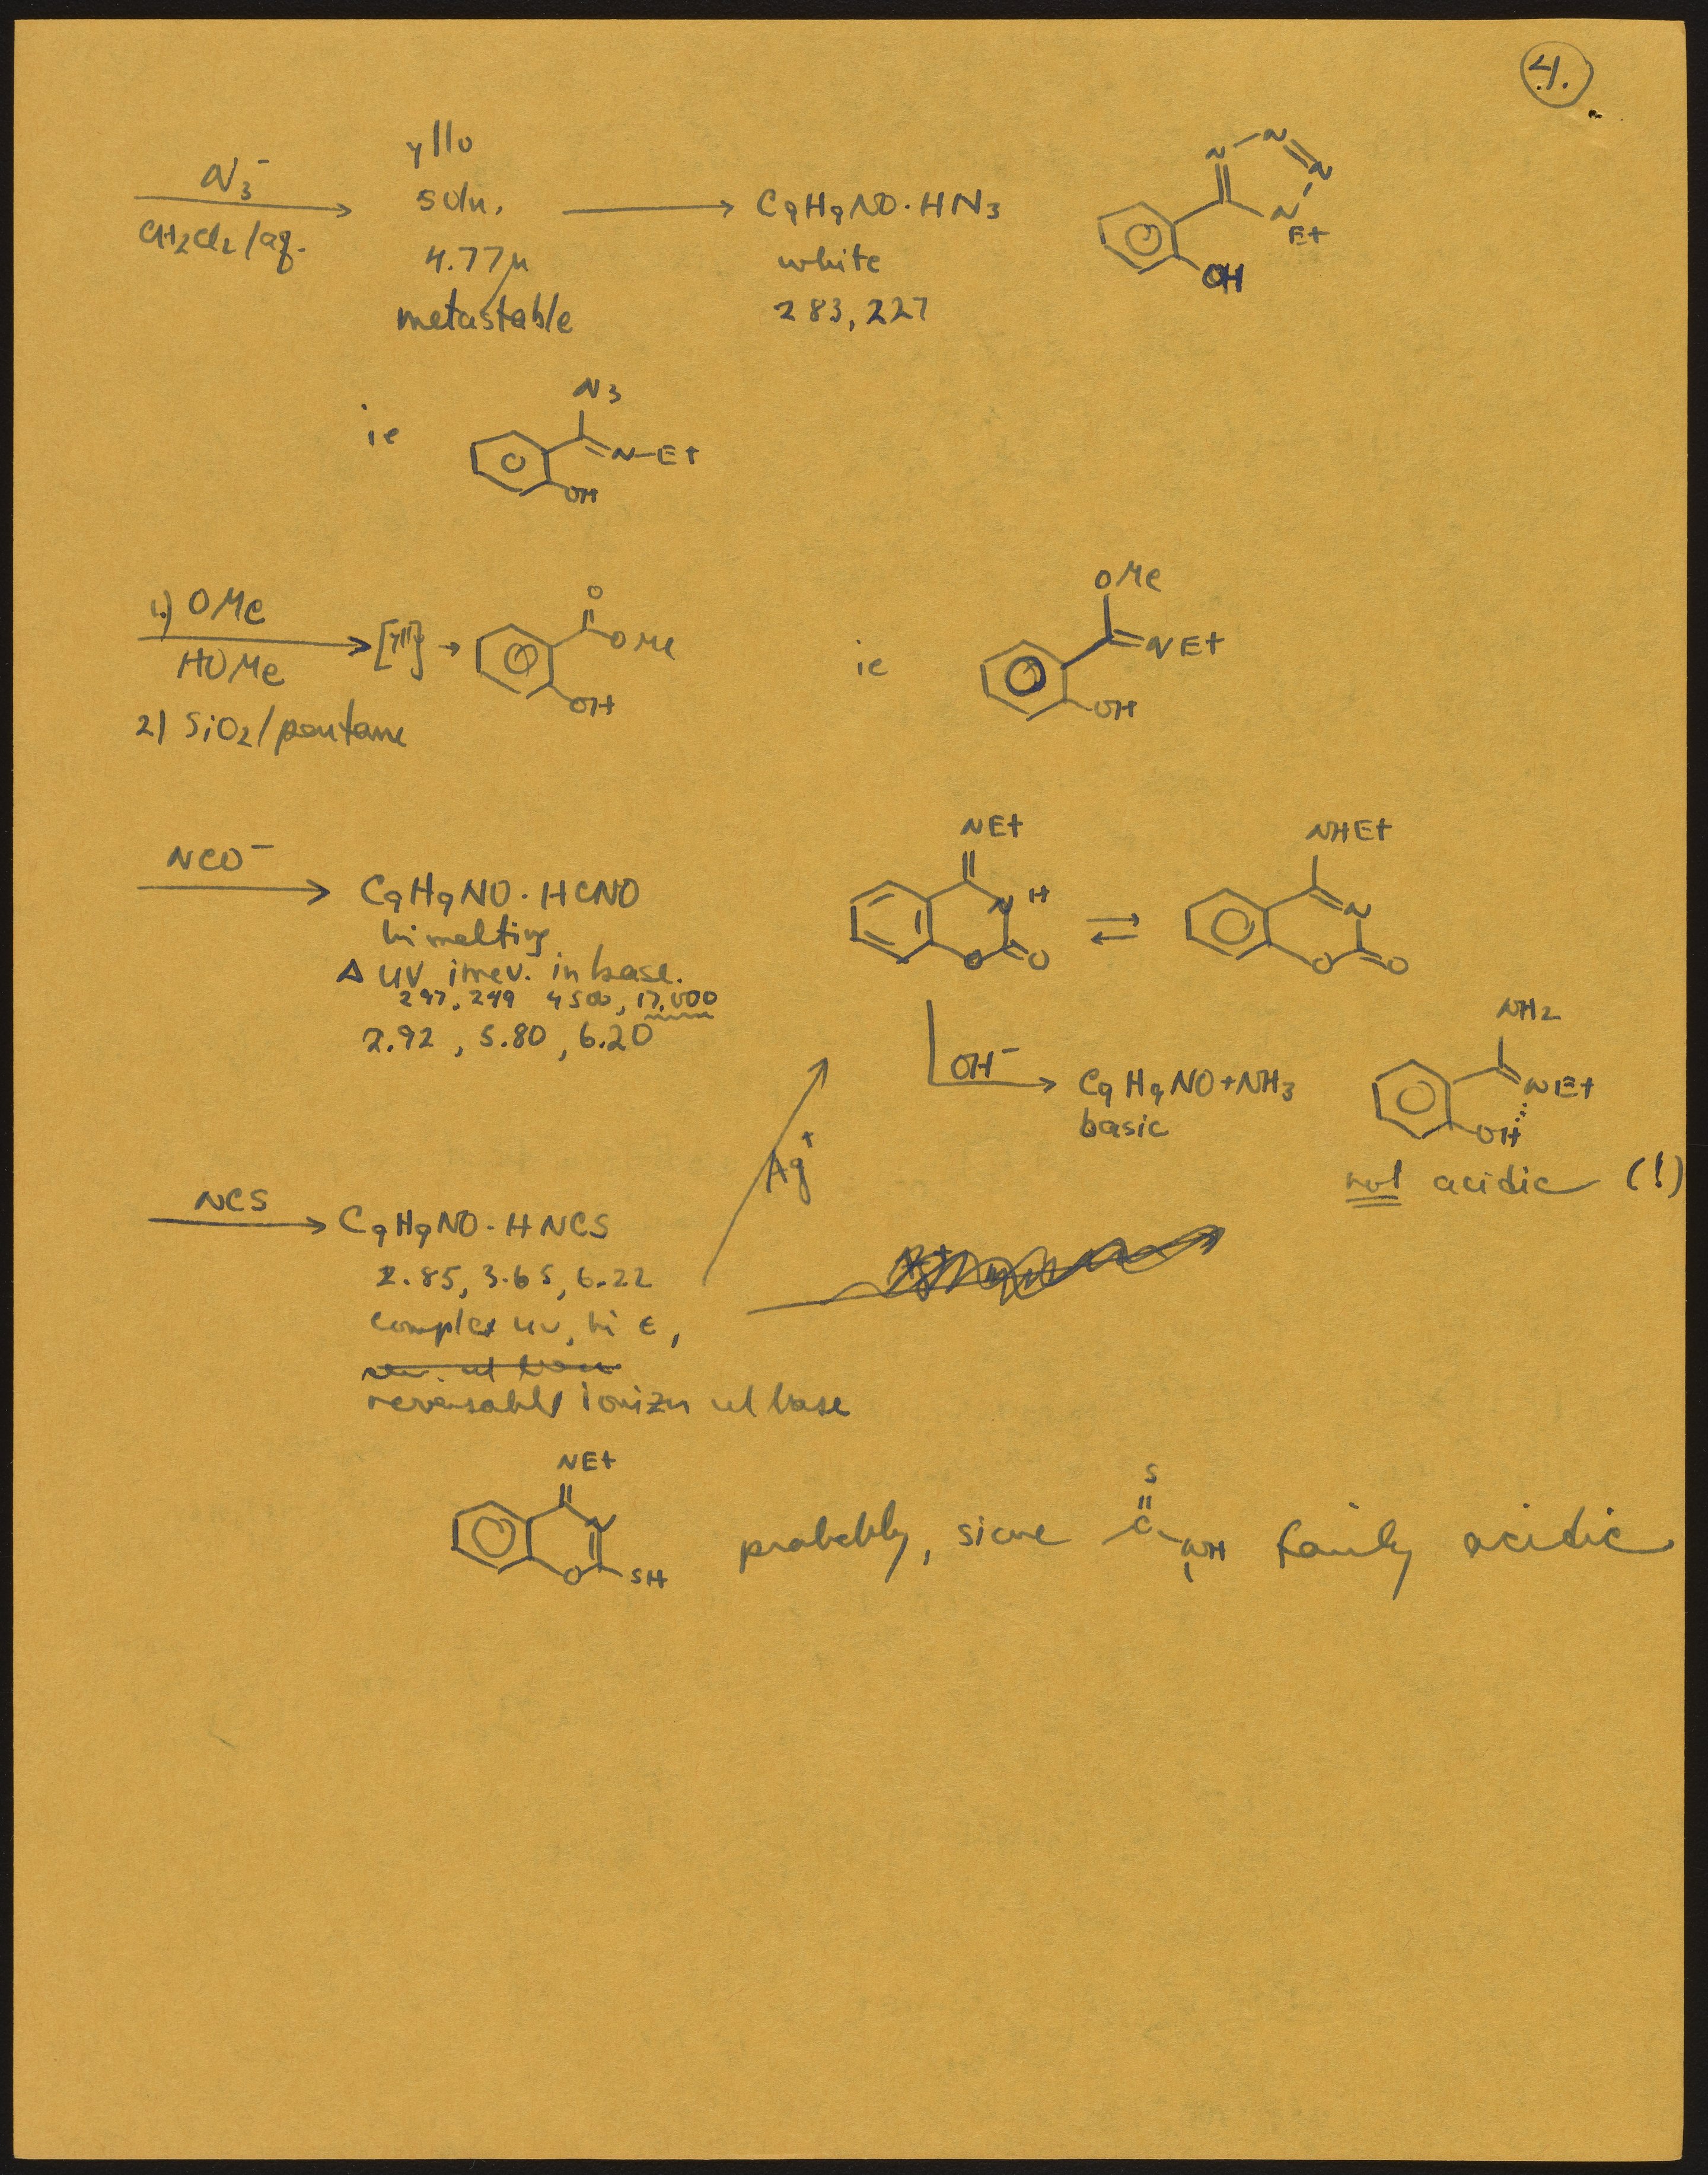 4.
N3⁻
CH2Cl2/aq.
yllo
soln.
4.77μ
metastable
C9H9NO·HN3
white
283, 227
N N N N Et
OH
ie
N3
N-Et
OH
1.) OMe
HOMe
2) SiO2/pentane
[yll] →
O
OMe
OH
ie
OMe
NEt
OH
NCO⁻
C9H9NO·HCNO
hi melting
Δ UV irrev. in base.
297, 249 4500, 17,000
2.92, 5.80, 6.20
NEt
N H
O O
NHEt
N
O O
OH⁻
C9H9NO+NH3
basic
NH2
NEt
OH
not acidic (!)
Ag+
NCS
C9H9NO·HNCS
2.85, 3.65, 6.22
complex uv, hi ε,
reversable ionizn w/ base
NEt
N
O SH
probably, since
S
C
NH
fairly acidic